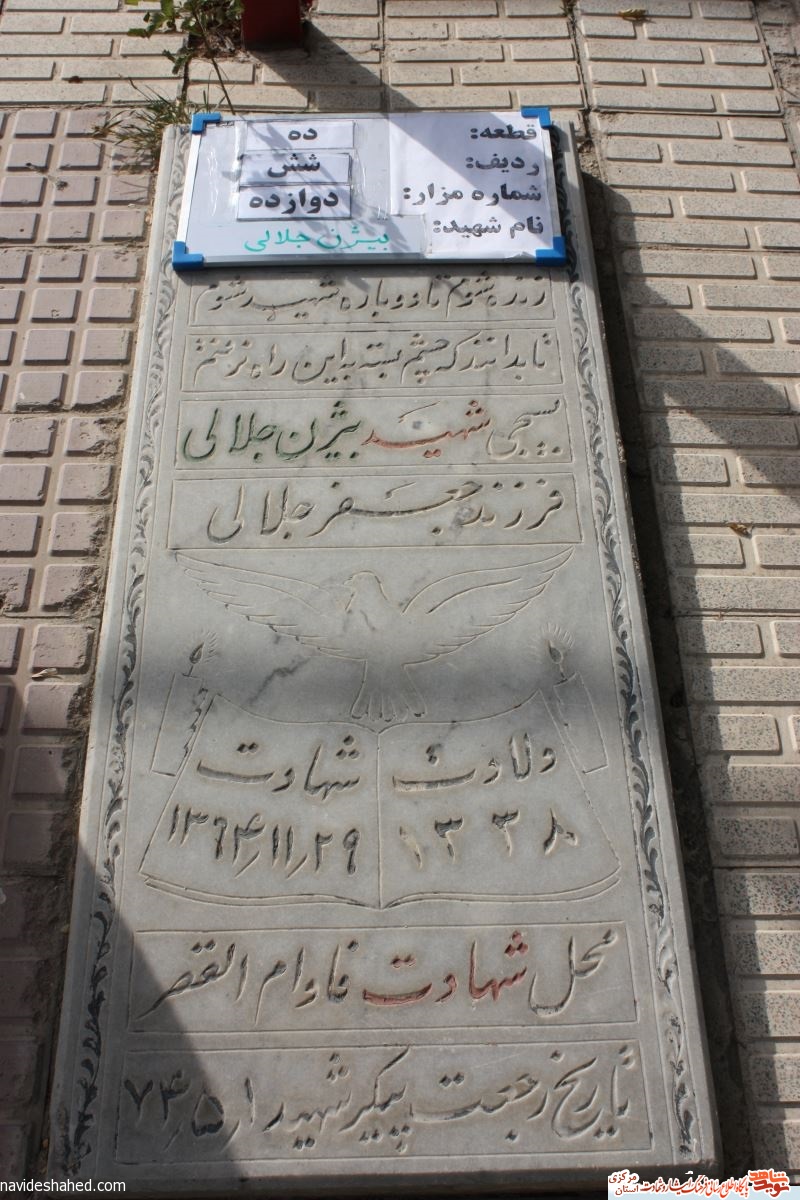 قطعه: ده
ردیف: شش
شماره مزار: دوازده
نام شهید: بیژن جلالی
زنده شوم تا دوباره شهید شوم
تا بدانند که چشم بسته به این راه نرفتم
بسیجی شهید بیژن جلالی
فرزند جعفر جلالی
ولادت شهادت
۱۳۳۸ ۱۳۶۴/۱۱/۲۹
محل شهادت فاو ام القصر
تاریخ رجعت پیکر شهید ۷۴/۵/۱
navideshahed.com
نوید شاهد
مرکزی
استان